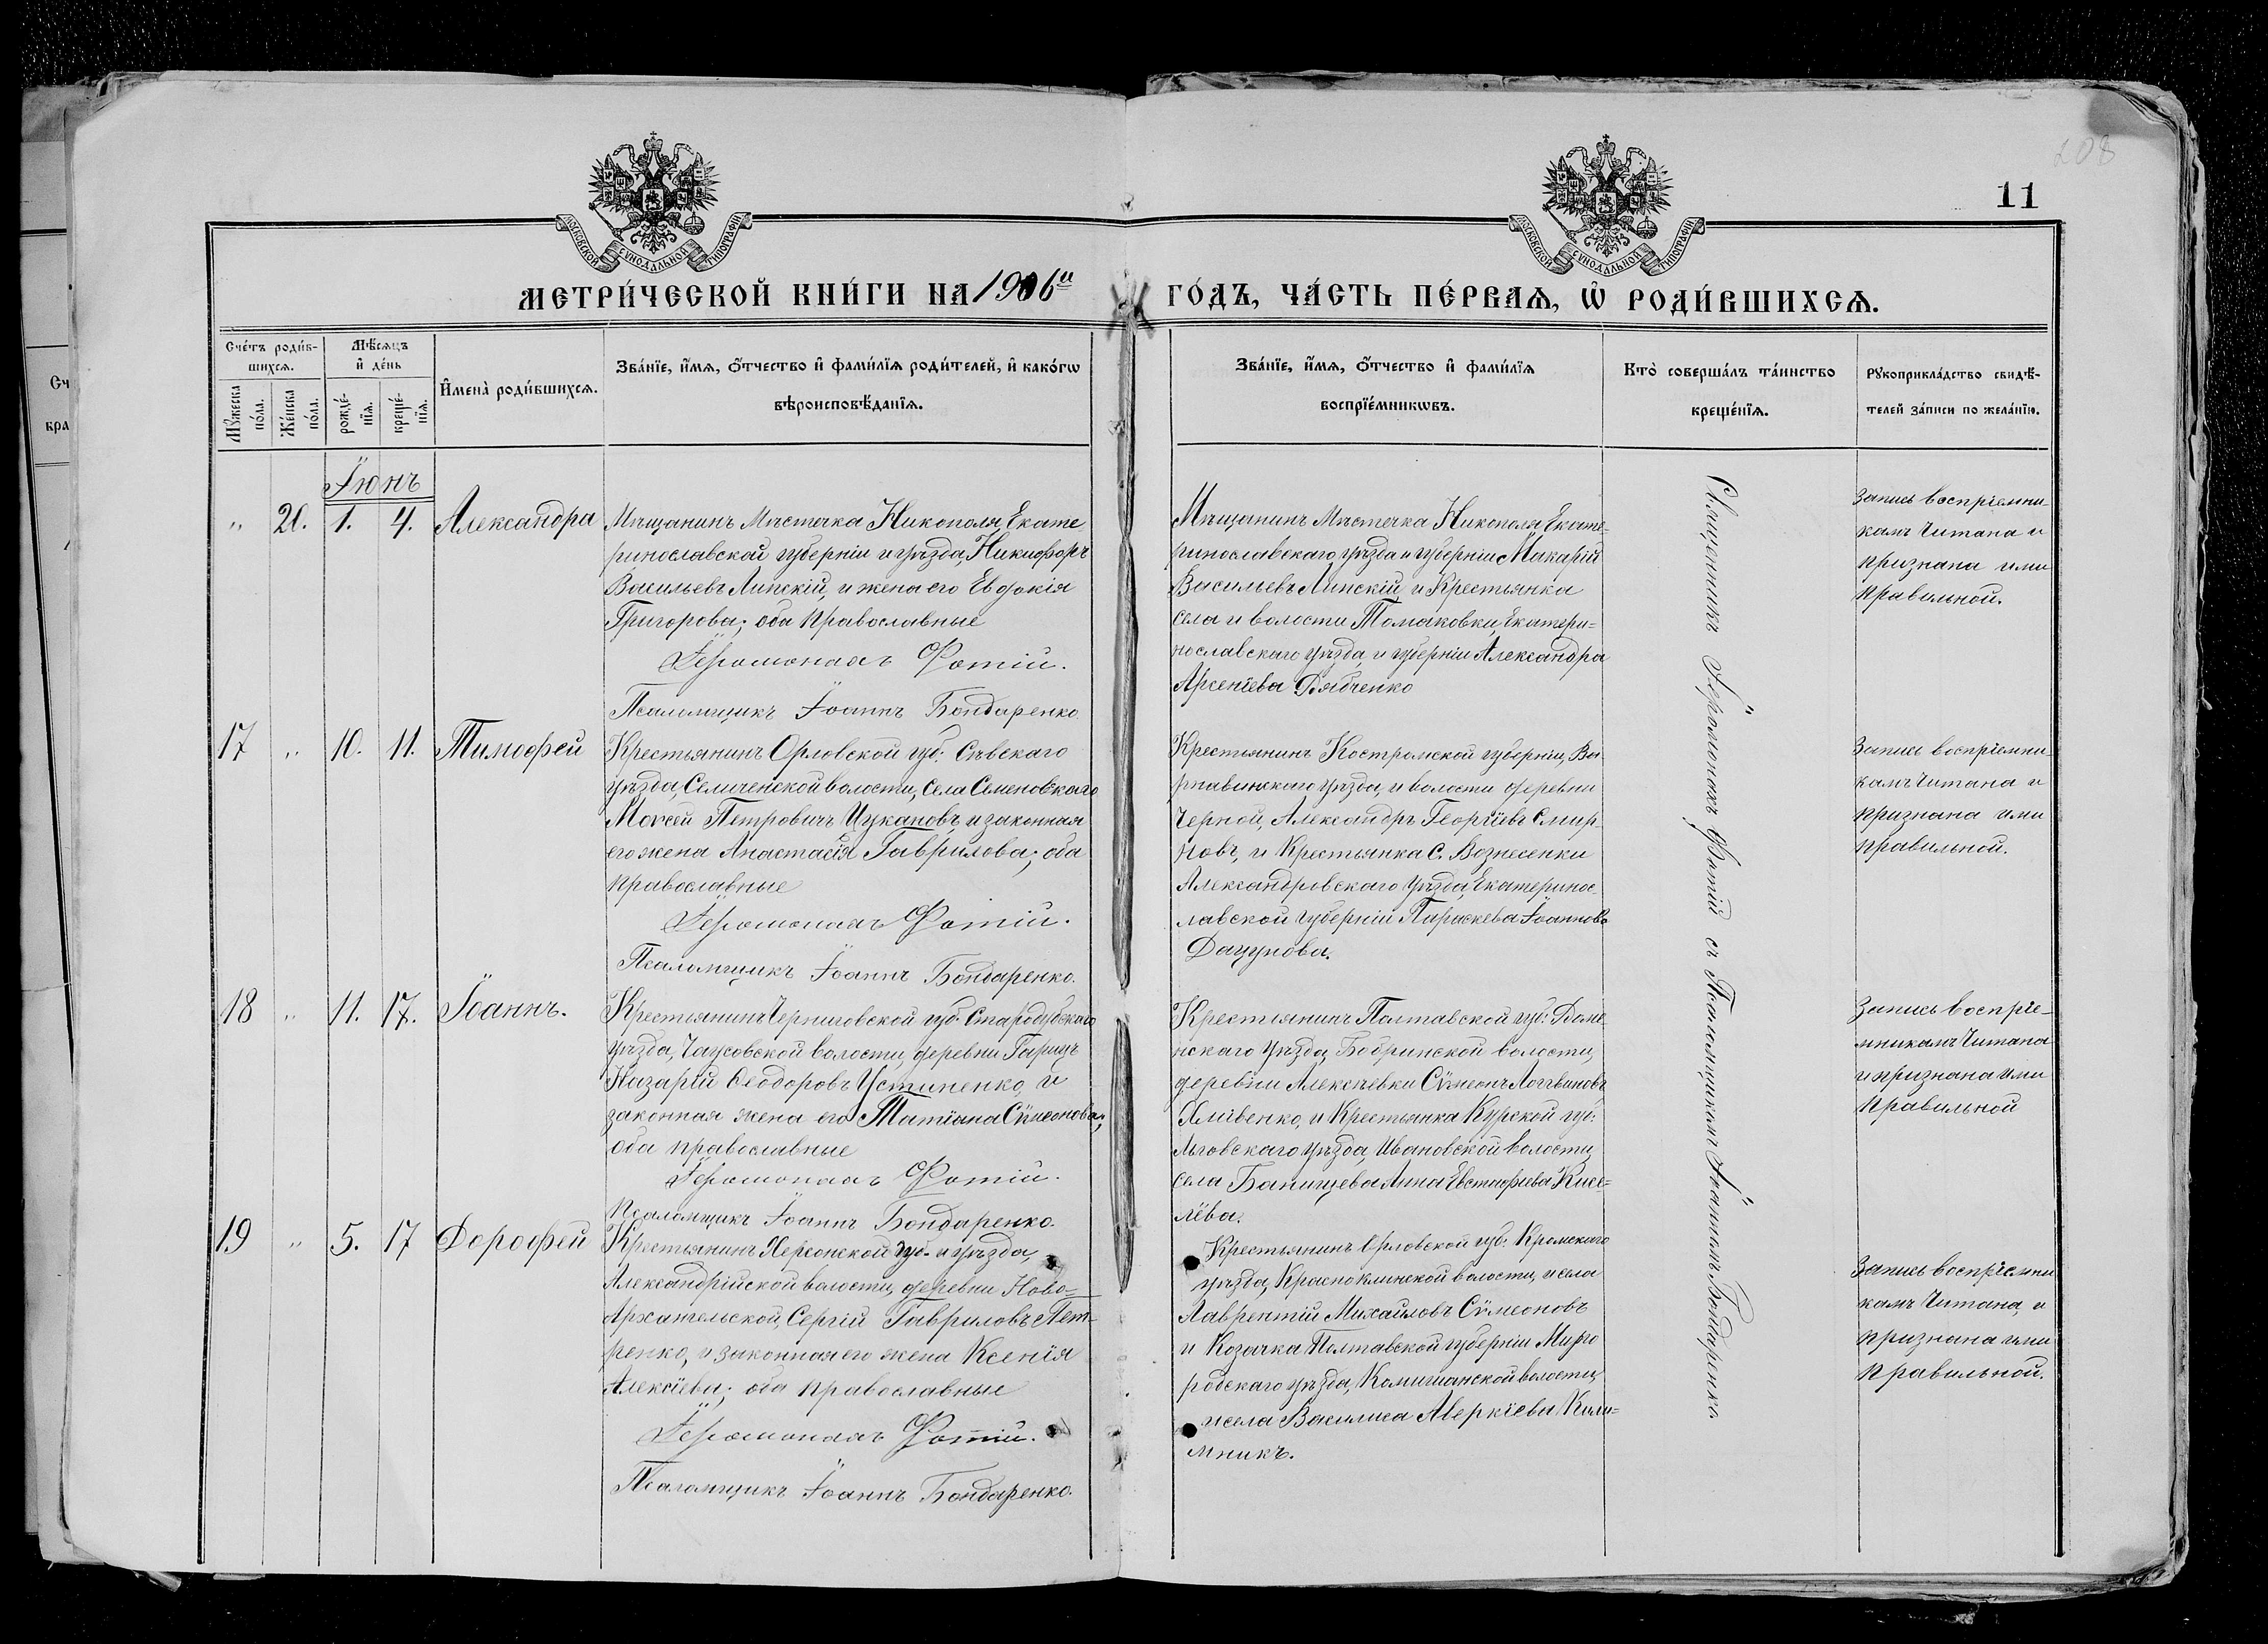 208
11
МОСКОВСКОЙ СѴНОДАЛЬНОЙ ТИПОГРАФІИ
МОСКОВСКОЙ СѴНОДАЛЬНОЙ ТИПОГРАФІИ
МЕТРИ́ЧЕСКОЙ КНИ́ГИ НА 1906й ГО́ДЪ, ЧА́СТЬ ПЕ́РВАѦ, Ѡ҆ РОДИ́ВШИХСѦ.
Сче́тъ роди́в-
шихсѧ.
Мѣ́сѧцъ
и҆ де́нь
Мꙋ́жеска
по́ла.
Же́нска
по́ла.
рожде́-
нїѧ.
креще́-
нїѧ.
И҆мена̀ роди́вшихсѧ.
Зва́нїе, и҆́мѧ, ѻ҆́тчество и҆ фами́лїѧ роди́телей, и҆ како́гѡ
вѣроисповѣ́данїѧ.
Зва́нїе, и҆́мѧ, ѻ҆́тчество и҆ фами́лїѧ
воспрїе́мникѡвъ.
Кто̀ соверша́лъ та́инство
креще́нїѧ.
Рꙋкоприкла́дство свидѣ́-
телей за́писи по жела́нїю.
Іюнь
" 20. 1. 4. Александра
Мѣщанинъ Мѣстечка Никополя, Екате
ринославской губерніи и уѣзда, Никифоръ
Васильевъ Липскій, и жена его Евдокія
Григорова; оба православные
Іеромонахъ Фотій.
Псаломщикъ Іоаннъ Бондаренко
Мѣщанинъ Мѣстечка Никополя, Екате-
ринославскаго уѣзда и губерніи Макарій
Васильевъ Липскій, и Крестьянка
села и волости Томаковки, Екатери-
нославскаго уѣзда, и губерніи Александра
Арсеніева Рябченко
Запись воспріемни-
камъ читана и
признана ими
правильной.
17 " 10. 11. Тимофей
Крестьянинъ Орловской губ: Сѣвскаго
уѣзда, Селиченской волости, села Семеновскаго
Моѵсей Петровичъ Цукановъ, и законная
его жена Анастасія Гаврилова; оба
православные
Іеромонахъ Фотій.
Псаломщикъ Іоаннъ Бондаренко.
Крестьянинъ Костромской губерніи, Ва-
рнавинскаго уѣзда, и волости деревни
Черной, Александръ Георгіевъ Смир-
новъ, и Крестьянка С. Вознесенки
Александровскаго уѣзда, Екатеринос-
лавской губерніи Параскева Іоаннова
Дацунова.
Запись воспріемни-
камъ читана и
признана ими
правильной.
18 " 11. 17. Іоаннъ.
Крестьянинъ Черниговской губ: Стародубскаго
уѣзда, Чаусовской волости, деревни Гарицъ
Назарій Ѳеодоровъ Устименко, и
законная жена его Татіана Сѵмеонова;
оба православные
Іеромонахъ Фотій.
Псаломщикъ Іоаннъ Бондаренко.
Крестьянинъ Полтавской губ: Роме
нскаго уѣзда, Бобринской волости,
деревни Алексѣевки Сѵмеонъ Логвиновъ
Хливенко, и Крестьянка Курской губ:
Льговскаго уѣзда, Ивановской волости,
села Банищева Анна Евстафіева Кисе-
лёва.
Запись воспріе-
мникамъ читана
и признана ими
правильной
19 " 5. 17 Дорофей
Крестьянинъ Херсонской губ: и уѣзда,
Александрійской волости, деревни Ново-
Архангельской, Сергій Гавриловъ Пет-
ренко, и законная его жена Ксенія
Алексіева; оба православные
Іеромонахъ Фотій.
Псаломщикъ Іоаннъ Бондаренко.
Крестьянинъ Орловской губ: Кромскаго
уѣзда, Красноклинской волости, и села
Лаврентій Михаиловъ Сѵмеоновъ
и Козачка Полтавской губерніи Мирго
родскаго уѣзда, Комишанской волости,
и села Василиса Аверкіева Кали-
мникъ.
Запись воспріемни
камъ читана, и
признана ими
правильной.
Священникъ Іеромонахъ Фотій съ Псаломщикомъ Іоанномъ Бондаренко